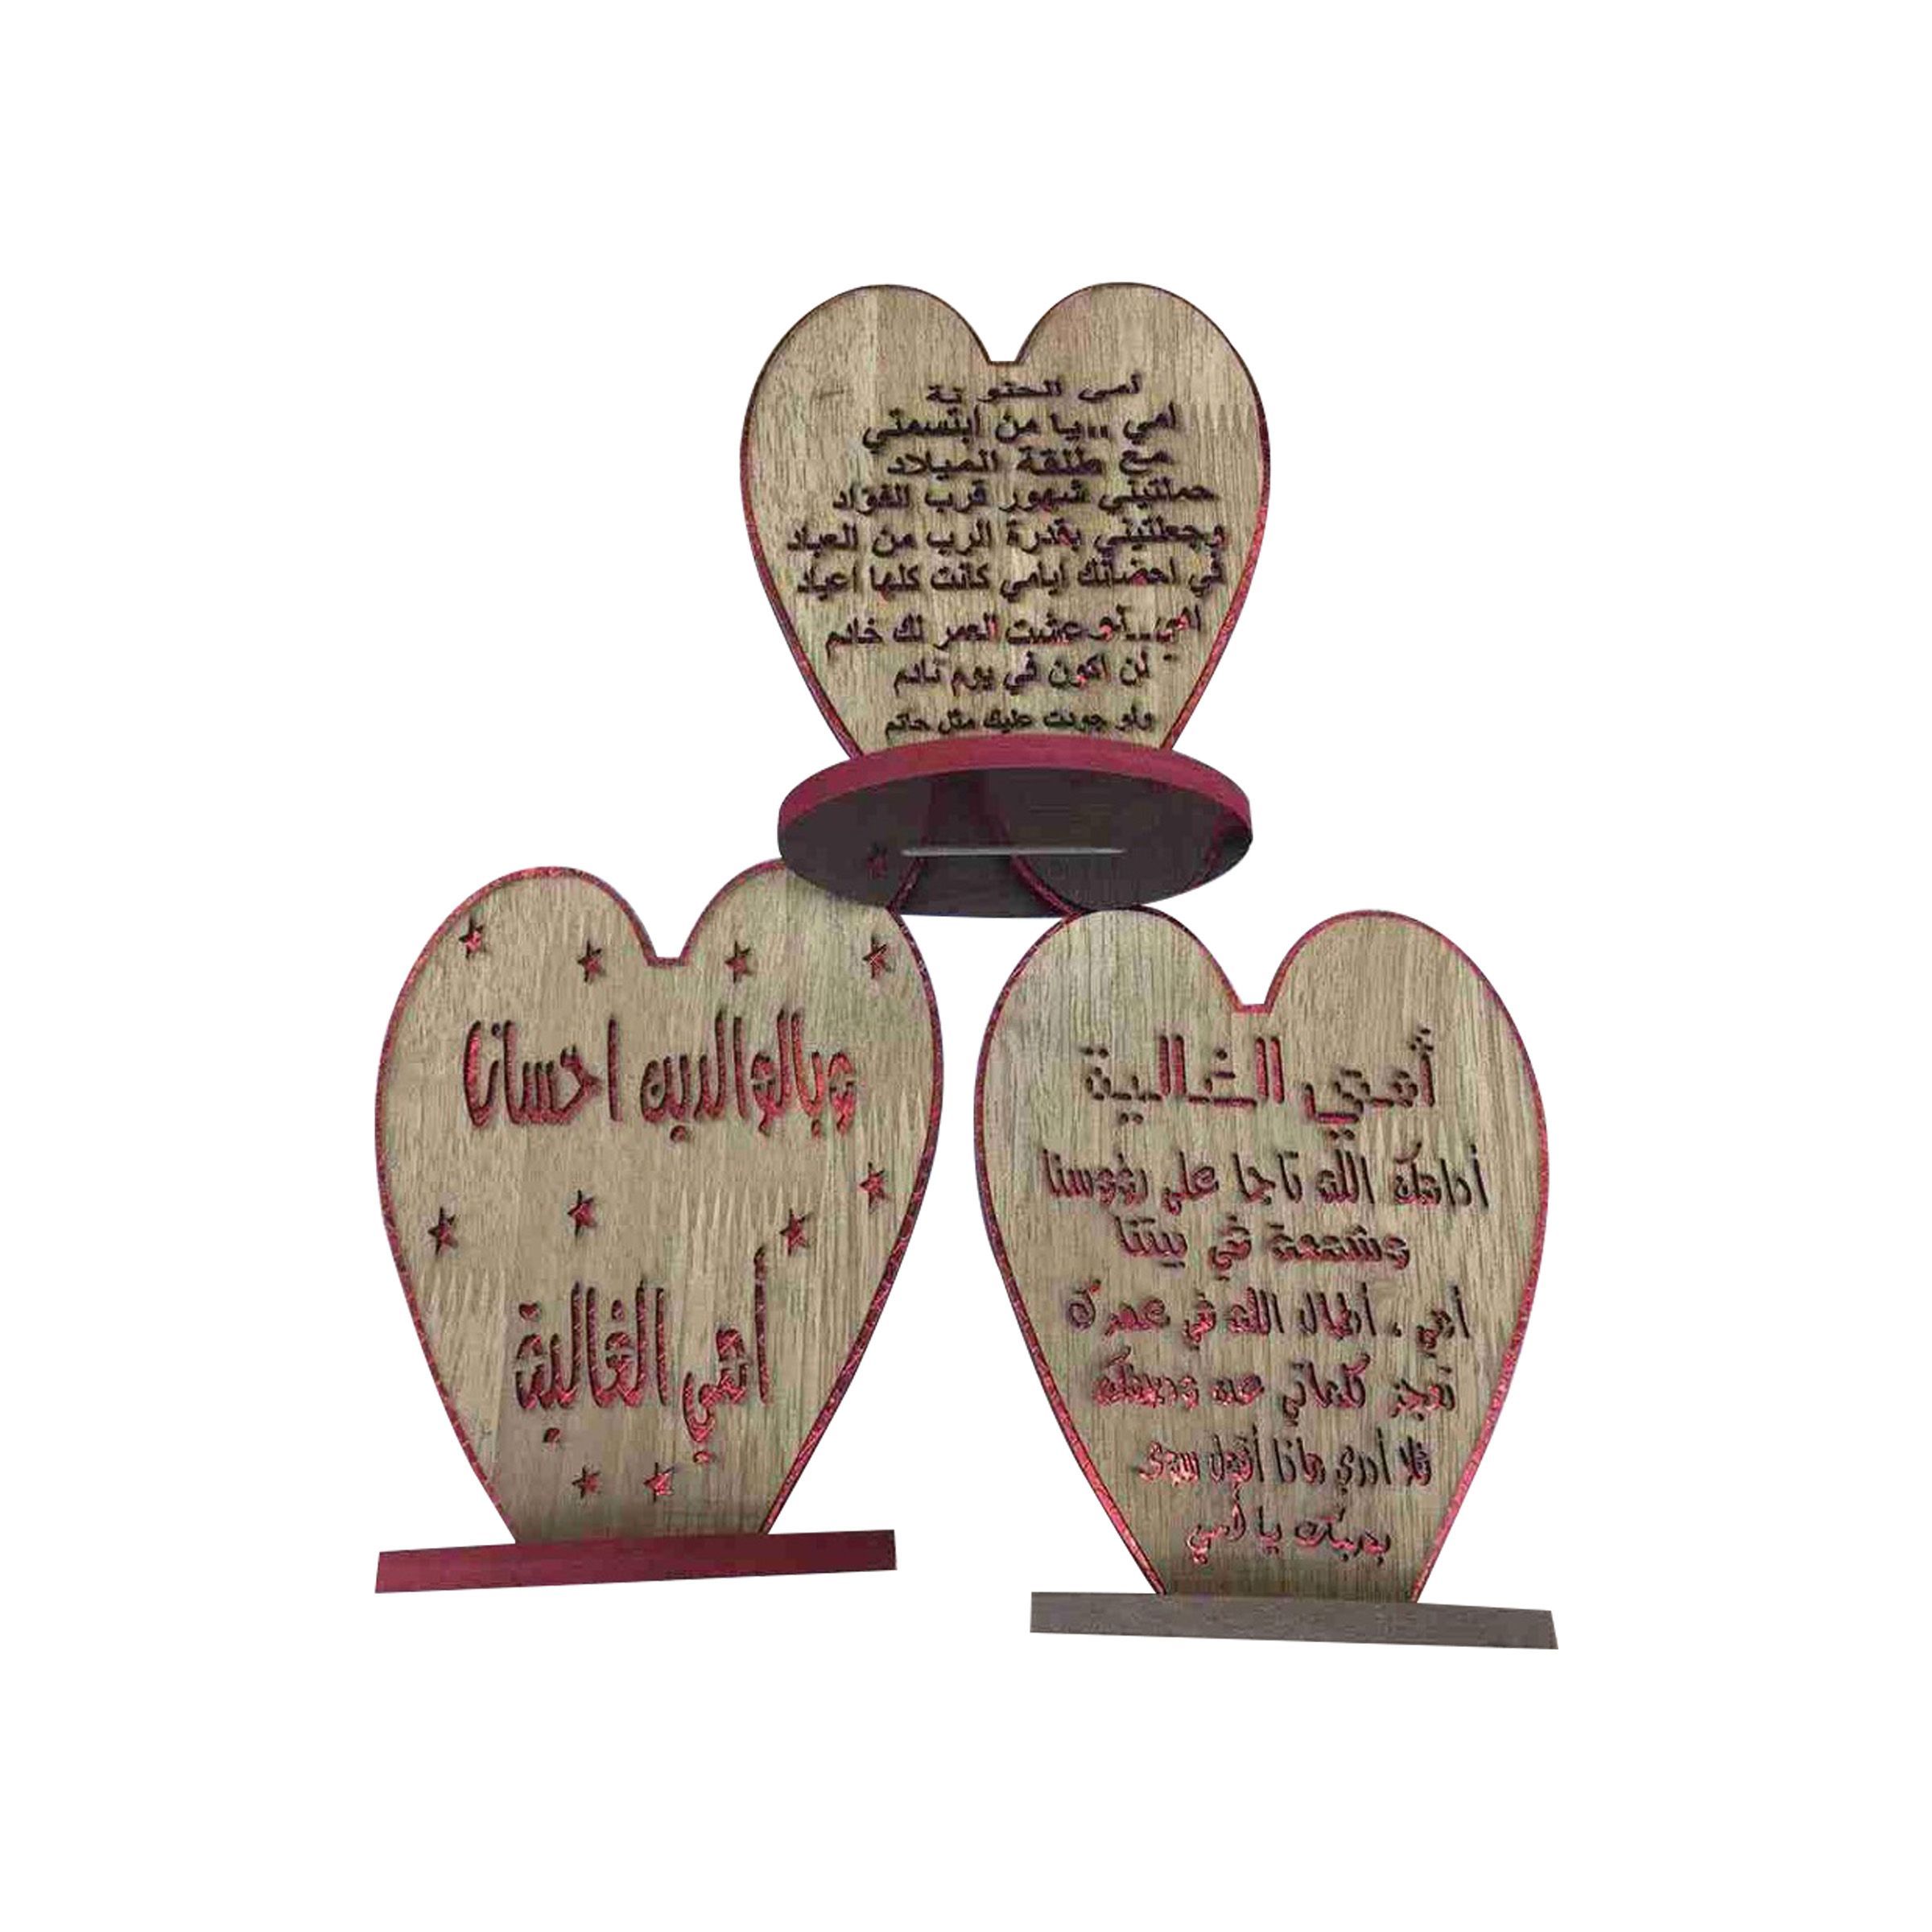 امي الحنونة
امي ..يا من ابتسمتي
مع طلقة الميلاد
حملتيني شهور قرب الفؤاد
وجعلتيني بقدرة الرب من العباد
في احضانك ايامي كانت كلها اعياد
امي...لو عشت العمر لك خادم
لن اكون في يوم نادم
ولو جودت عليك مثل حاتم
وبالوالدين احسانا
أمي الغالية
أمي الغالية
أدامك الله تاجا على رؤوسنا
وشمعة في بيتنا
أمي ، أطال الله في عمرك
تعجز كلماتي عن وصفك
فلا أدري ماذا أقول سوى
بحبك يا أمي